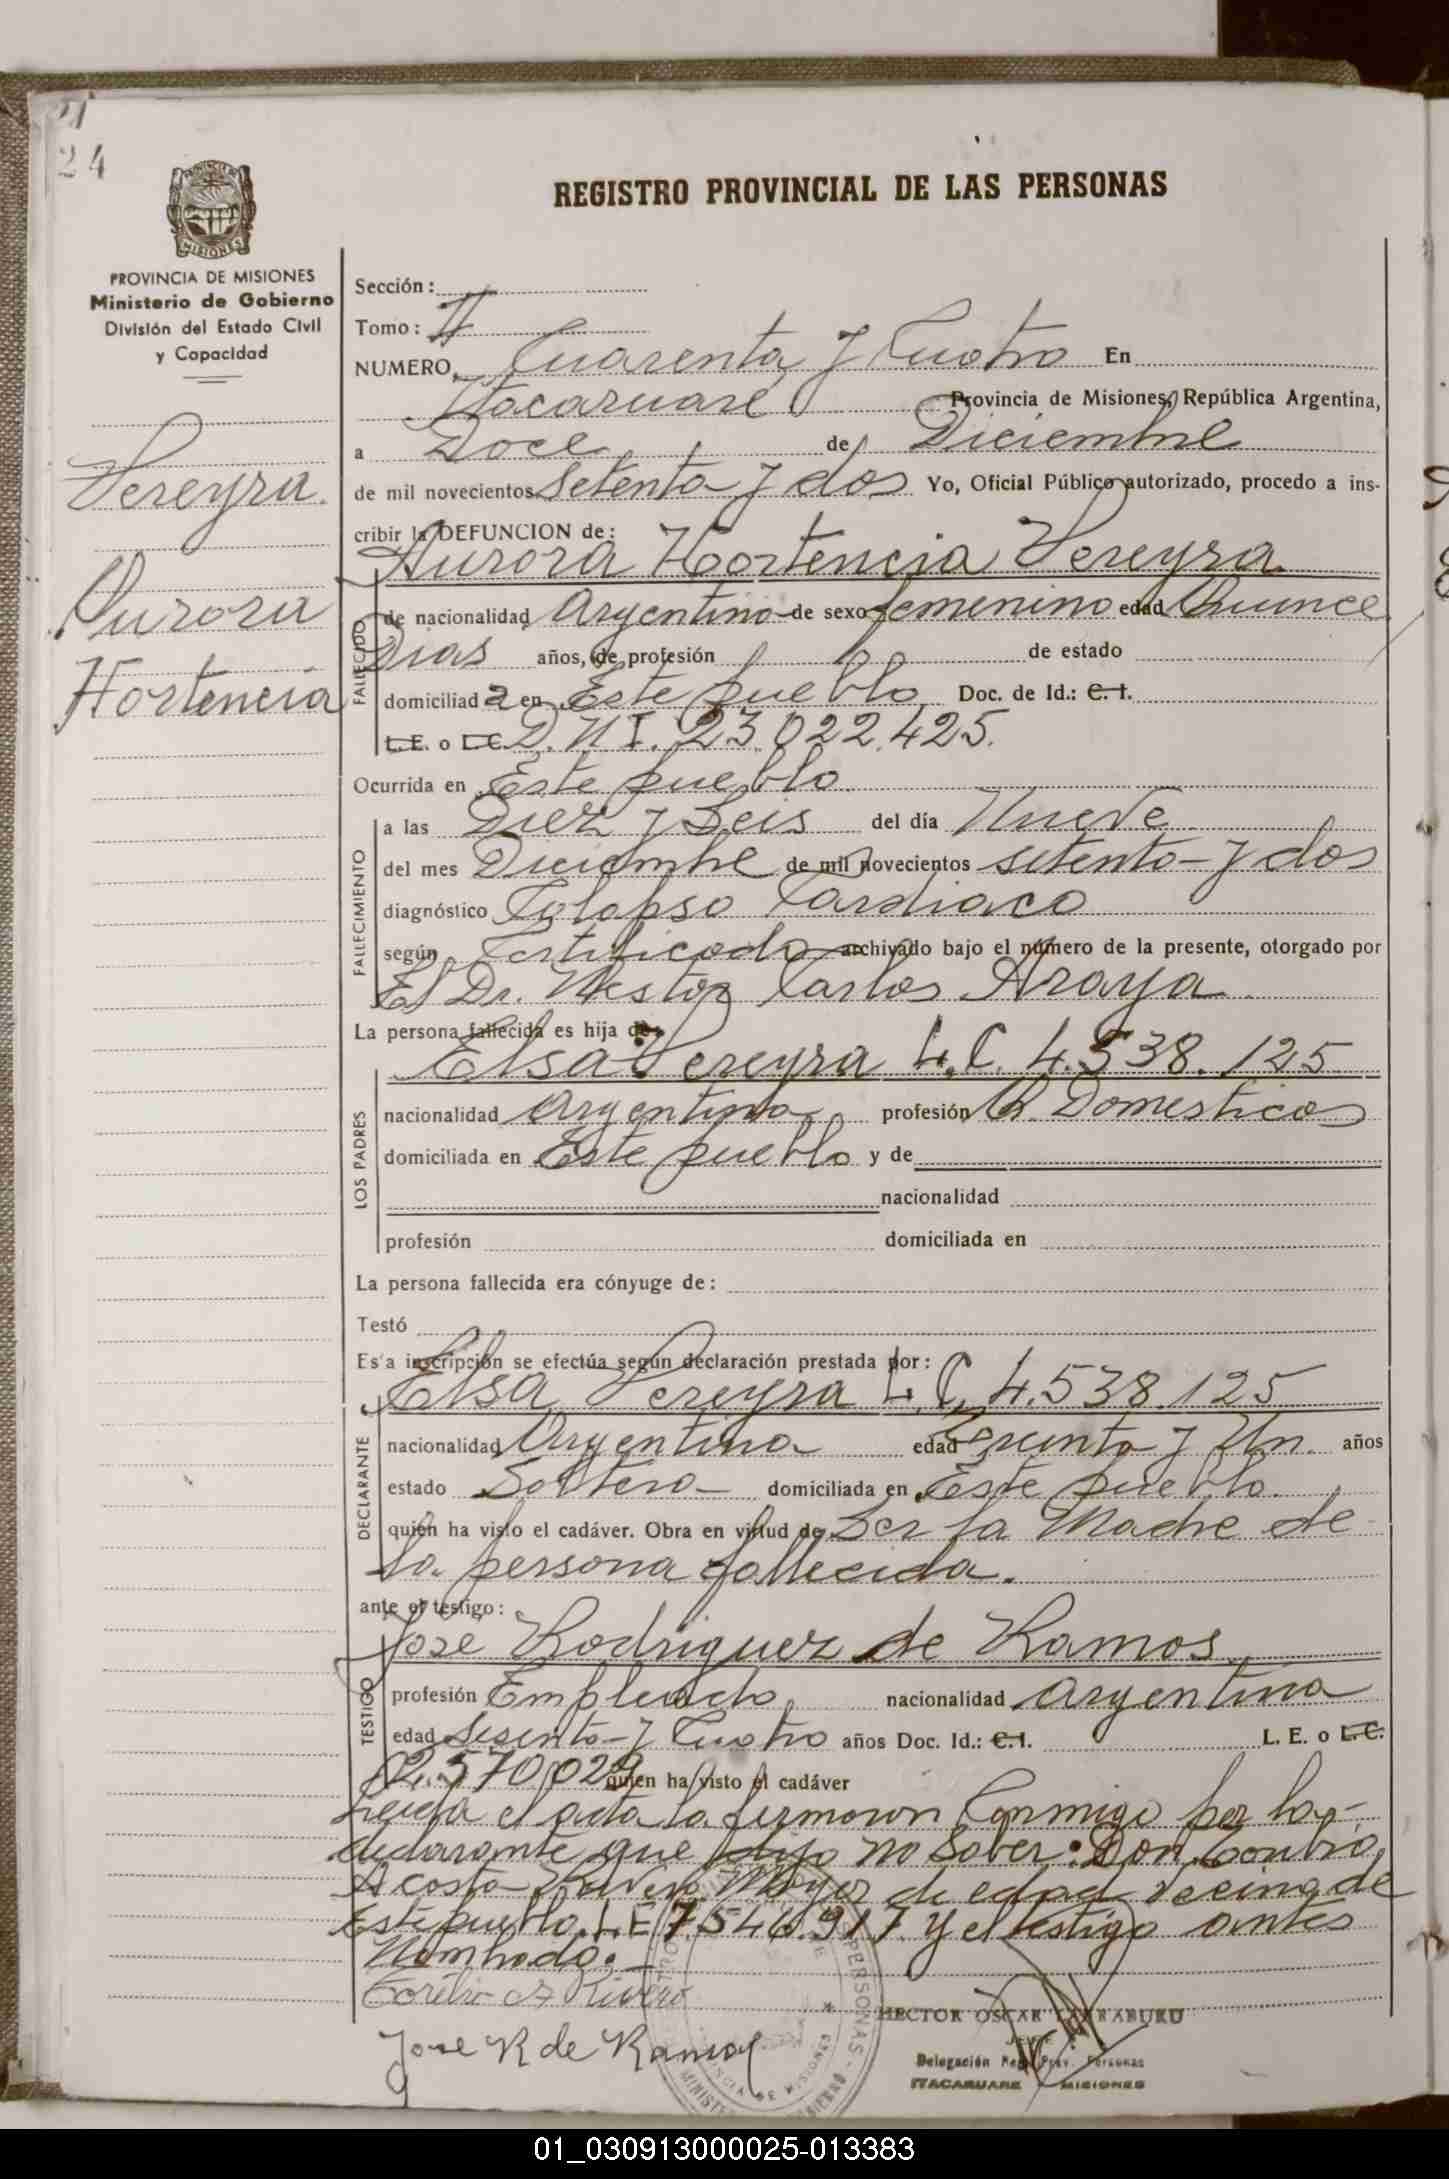 24
REGISTRO PROVINCIAL DE LAS PERSONAS
PROVINCIA DE MISIONES
Ministerio de Gobierno
División del Estado Civil
y Capacidad
Pereyra
Aurora
Hortencia
Sección:
Tomo: II
NUMERO, Cuarenta y Cuatro En
Itacaruaré Provincia de Misiones, República Argentina,
a Doce de Diciembre
de mil novecientos Setenta y dos Yo, Oficial Público autorizado, procedo a ins-
cribir la DEFUNCION de:
Aurora Hortencia Pereyra
FALLECIDO
de nacionalidad Argentina de sexo femenino edad Quince
Dias años, de profesión de estado
domiciliada en Este pueblo Doc. de Id.: C. I.
L.E. o L.C. D.N.I. 23.022.425.
Ocurrida en Este pueblo
FALLECIMIENTO
a las Diez y Seis del día Nueve
del mes Diciembre de mil novecientos setenta y dos
diagnóstico Colapso Cardiaco
según Certificado archivado bajo el número de la presente, otorgado por
El Dr. Nestor Carlos Araya
La persona fallecida es hija de:
Elsa Pereyra L.C. 4.538.125
LOS PADRES
nacionalidad Argentina profesión Q. Domesticos
domiciliada en Este pueblo y de
nacionalidad
profesión domiciliada en
La persona fallecida era cónyuge de:
Testó
Esta inscripción se efectúa según declaración prestada por:
Elsa Pereyra L.C. 4.538.125
DECLARANTE
nacionalidad Argentina edad Treinta y Un años
estado Soltera domiciliada en Este pueblo.
quien ha visto el cadáver. Obra en virtud de Ser la Madre de
la persona fallecida.
ante el testigo:
José Rodriguez de Ramos
TESTIGO
profesión Empleado nacionalidad Argentina
edad Sesenta y Cuatro años Doc. Id.: C.I. L. E. o L.C.
2.570.029 quien ha visto el cadáver
Leida el acta la firmaron Conmigo por la
declarante que dijo no Saber: Don
Acosta Rivero Mayor de edad vecino de
Este pueblo L.E. 7.546.917. y el testigo antes
Nombrado.
A Rivero
Jose R de Ramos
HECTOR OSCAR
JEFE
Delegación Reg. Prov. Personas
ITACARUARE MISIONES
01_030913000025-013383